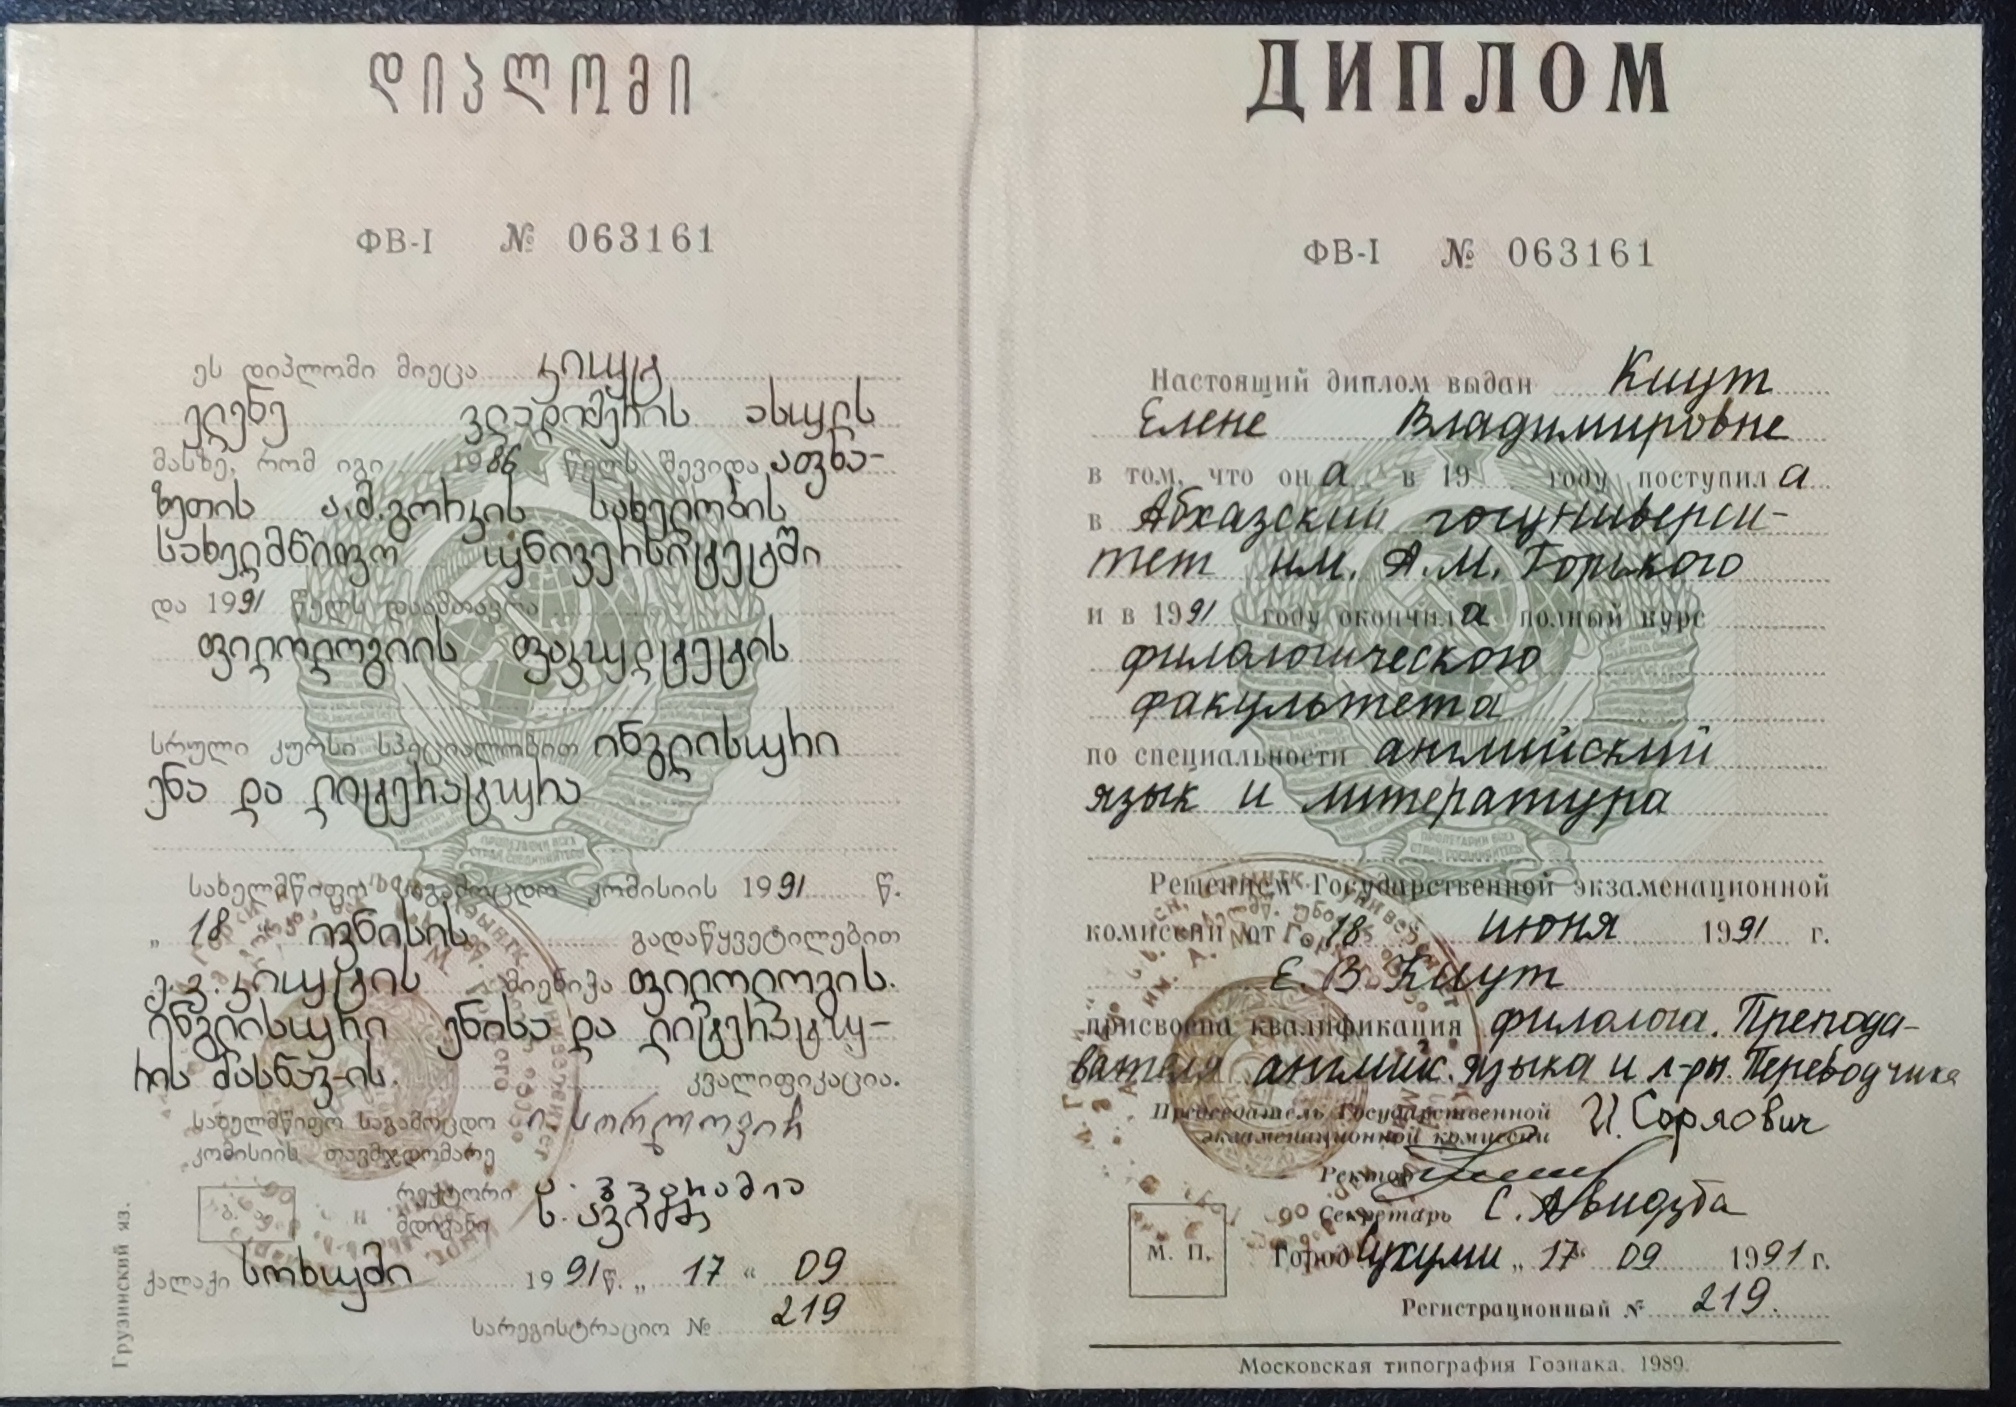 დიპლომი
ФВ-I № 063161
ეს დიპლომი მიეცა კიუტ
ელენე ვლადიმერის ასულს
მასზე, რომ იგი 1986 წელს შევიდა აფხა-
ზეთის ა.მ.გორკის სახელობის
სახელმწიფო უნივერსიტეტში
და 1991 წელს დაამთავრა
ფილოლოგიის ფაკულტეტის
სრული კურსი სპეციალობით ინგლისური
ენა და ლიტერატურა
სახელმწიფო საგამოცდო კომისიის 1991 წ.
„ 18 ივნისის გადაწყვეტილებით
ე.ვ. კიუტის მიენიჭა ფილოლოგის.
ინგლისური ენისა და ლიტერატუ-
რის მასწავ-ის. კვალიფიკაცია.
სახელმწიფო საგამოცდო
კომისიის თავმჯდომარე
ი. სორლოვიჩ
რექტორი
მდივანი
ქალაქი სოხუმი 1991 წ. „ 17 “ 09
სარეგისტრაციო № 219
Грузинский яз.
ДИПЛОМ
ФВ-I № 063161
Настоящий диплом выдан Киут
Елене Владимировне
в том, что она в 19 году поступила
в Абхазский госуниверси-
тет им. А.М. Горького
и в 1991 году окончила полный курс
филологического
факультета
по специальности английский
язык и литература
Решением Государственной экзаменационной
комиссии от 18 июня 1991 г.
Е. В. Киут
присвоена квалификация филолога. Препода-
вателя английс. языка и л-ры. Переводчика
Председатель Государственной
экзаменационной комиссии И. Сорлович
Ректор
Секретарь С. Авидзба
М. П. Город Сухуми „ 17 “ 09 1991 г.
Регистрационный № 219.
Московская типография Гознака. 1989.